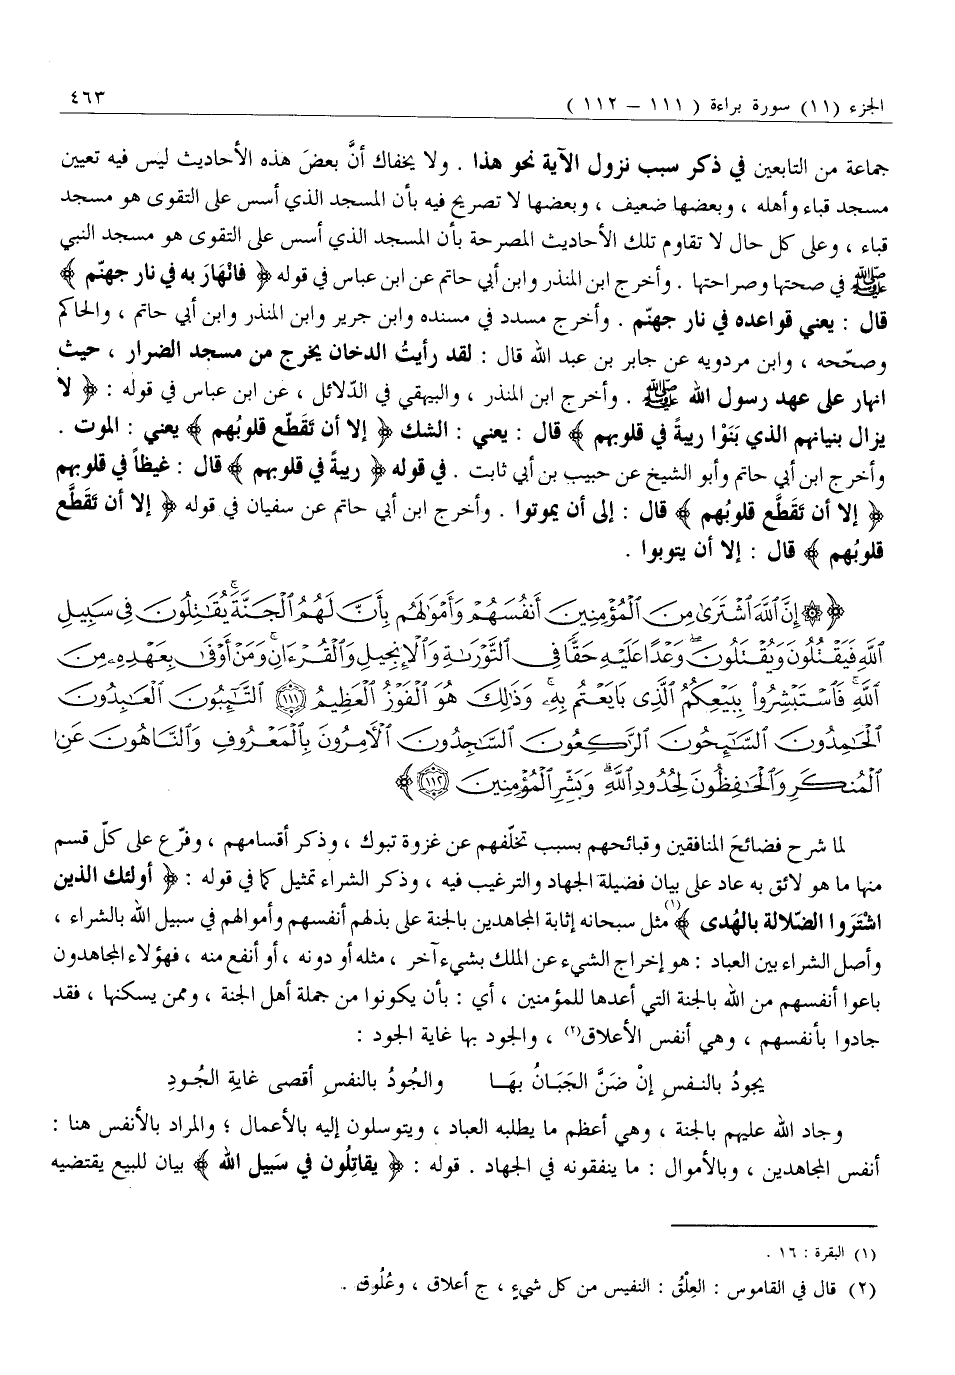 الجزء (١١) سورة براءة ( ١١١ – ١١٢ )
٤٦٣
جماعة من التابعين في ذكر سبب نزول الآية نحو هذا . ولا يخفاك أنَّ بعضَ هذه الأحاديث ليس فيه تعيين
مسجد قباء وأهله ، وبعضها ضعيف ، وبعضها لا تصريح فيه بأن المسجد الذي أسس على التقوى هو مسجد
قباء ، وعلى كل حال لا تقاوم تلك الأحاديث المصرحة بأن المسجد الذي أسس على التقوى هو مسجد النبي
ﷺ في صحتها وصراحتها . وأخرج ابن المنذر وابن أبي حاتم عن ابن عباس في قوله ﴿ فَانْهَارَ به في نار جهنّم ﴾
قال : يعني قواعده في نار جهنّم . وأخرج مسدد في مسنده وابن جرير وابن المنذر وابن أبي حاتم ، والحاكم
وصحّحه ، وابن مردويه عن جابر بن عبد الله قال : لقد رأيتُ الدخان يخرج من مسجد الضرار ، حيث
انهار على عهد رسول الله ﷺ . وأخرج ابن المنذر ، والبيهقي في الدّلائل ، عن ابن عباس في قوله : ﴿ لا
يزال بنيانهم الذي بَنَوْا ريبةً في قلوبهم ﴾ قال : يعني : الشك ﴿ إلا أن تَقَطّع قلوبُهم ﴾ يعني : الموت .
وأخرج ابن أبي حاتم وأبو الشيخ عن حبيب بن أبي ثابت . في قوله ﴿ ريبةً في قلوبهم ﴾ قال : غيظاً في قلوبهم
﴿ إلا أن تَقَطَّع قلوبُهم ﴾ قال : إلى أن يموتوا . وأخرج ابن أبي حاتم عن سفيان في قوله ﴿ إلا أن تَقَطَّع
قلوبُهم ﴾ قال : إلا أن يتوبوا .
﴿ ۞ إِنَّ اللَّهَ اشْتَرَىٰ مِنَ الْمُؤْمِنِينَ أَنفُسَهُمْ وَأَمْوَالَهُم بِأَنَّ لَهُمُ الْجَنَّةَ ۚ يُقَاتِلُونَ فِي سَبِيلِ
اللَّهِ فَيَقْتُلُونَ وَيُقْتَلُونَ ۖ وَعْدًا عَلَيْهِ حَقًّا فِي التَّوْرَاةِ وَالْإِنجِيلِ وَالْقُرْءَانِ ۚ وَمَنْ أَوْفَىٰ بِعَهْدِهِ مِنَ
اللَّهِ ۚ فَاسْتَبْشِرُوا بِبَيْعِكُمُ الَّذِي بَايَعْتُم بِهِ ۚ وَذَٰلِكَ هُوَ الْفَوْزُ الْعَظِيمُ ﴿١١١﴾ التَّائِبُونَ الْعَابِدُونَ
الْحَامِدُونَ السَّائِحُونَ الرَّاكِعُونَ السَّاجِدُونَ الْآمِرُونَ بِالْمَعْرُوفِ وَالنَّاهُونَ عَنِ
الْمُنكَرِ وَالْحَافِظُونَ لِحُدُودِ اللَّهِ ۗ وَبَشِّرِ الْمُؤْمِنِينَ ﴿١١٢﴾ ﴾
لما شرح فضائحَ المنافقين وقبائحهم بسبب تخلّفهم عن غزوة تبوك ، وذكر أقسامهم ، وفرّع على كلّ قسم
منها ما هو لائق به عاد على بيان فضيلة الجهاد والترغيب فيه ، وذكر الشراء تمثيل كما في قوله : ﴿ أولئك الذين
اشتَرَوا الضّلالة بالهُدى ﴾(١) مثل سبحانه إثابة المجاهدين بالجنة على بذلهم أنفسهم وأموالهم في سبيل الله بالشراء ،
وأصل الشراء بين العباد : هو إخراج الشيء عن الملك بشيء آخر ، مثله أو دونه ، أو أنفع منه ، فهؤلاء المجاهدون
باعوا أنفسهم من الله بالجنة التي أعدها للمؤمنين ، أي : بأن يكونوا من جملة أهل الجنة ، وممن يسكنها ، فقد
جادوا بأنفسهم ، وهي أنفس الأعلاق(٢) ، والجود بها غاية الجود :
يجودُ بالنفسِ إنْ ضَنَّ الجَبَانُ بهَا والجُودُ بالنفسِ أقصى غايةِ الجُودِ
وجاد الله عليهم بالجنة ، وهي أعظم ما يطلبه العباد ، ويتوسلون إليه بالأعمال ؛ والمراد بالأنفس هنا :
أنفس المجاهدين ، وبالأموال : ما ينفقونه في الجهاد . قوله : ﴿ يقاتِلُون في سَبيل الله ﴾ بيان للبيع يقتضيه
(١) البقرة : ١٦ .
(٢) قال في القاموس : العِلْقُ : النفيس من كل شيءٍ ، ج أعلاق ، وعُلُوق .